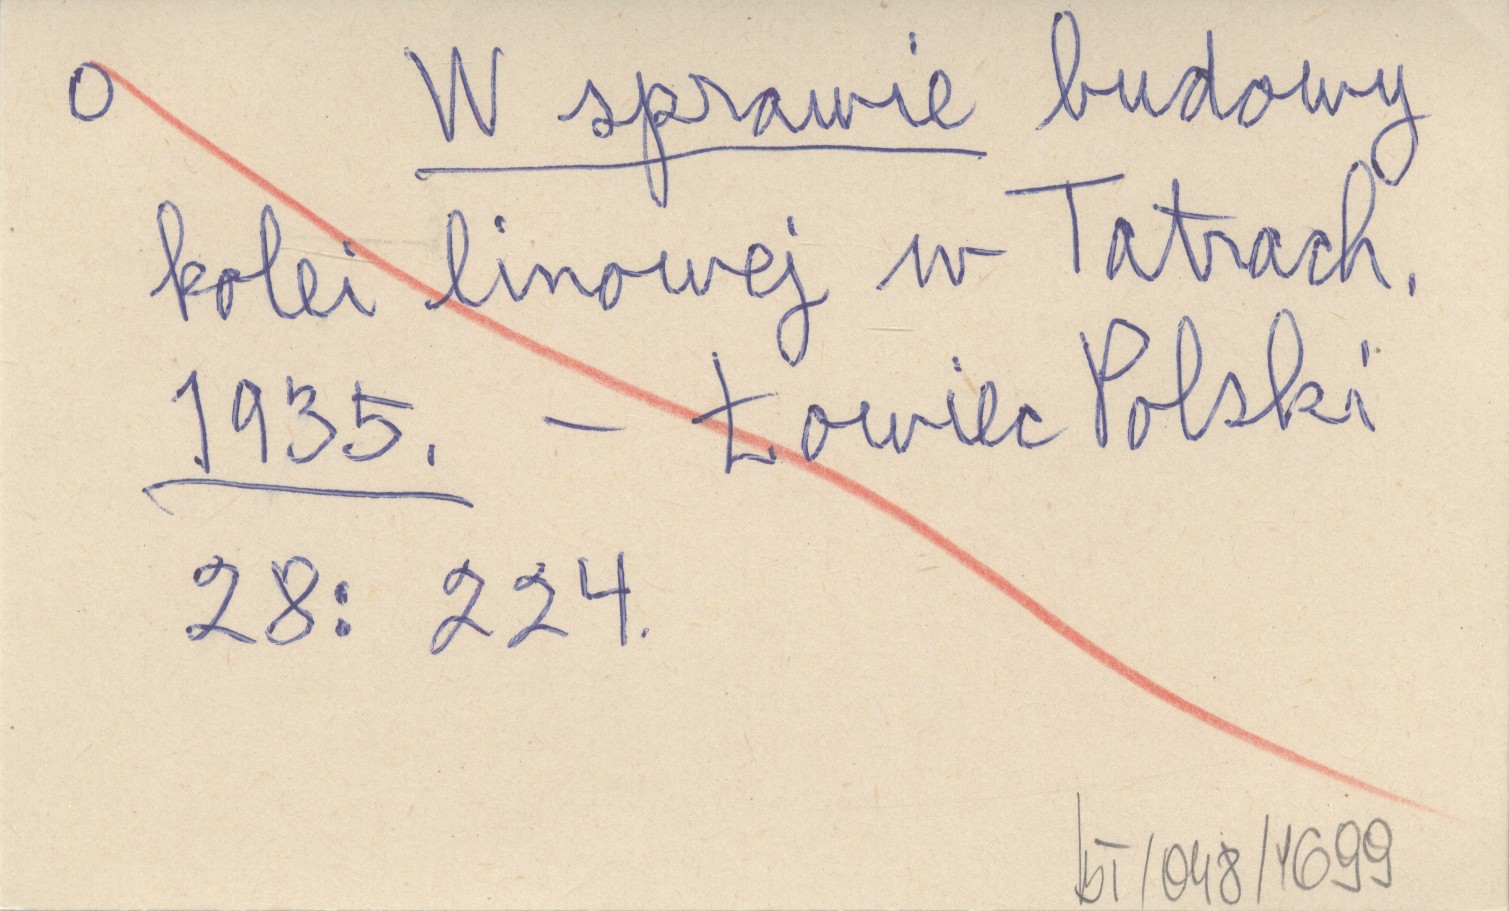 O W sprawie budowy
kolei linowej w Tatrach.
1935. – Łowiec Polski
28: 224.
bT/048/1699